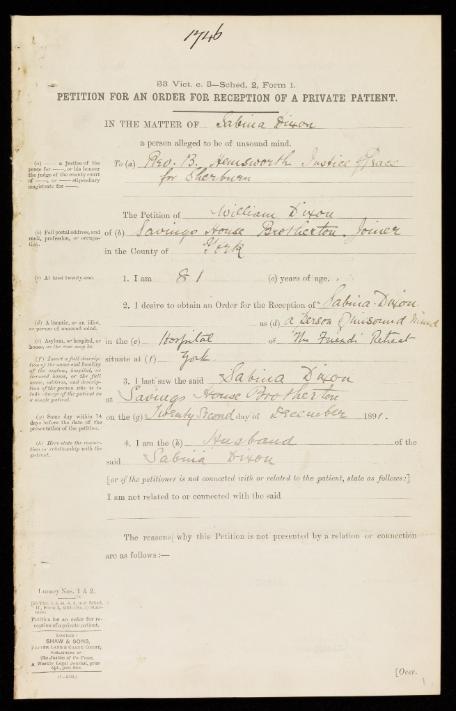 1746
53 Vict. c. 5—Sched. 2, Form 1.
PETITION FOR AN ORDER FOR RECEPTION OF A PRIVATE PATIENT.
IN THE MATTER OF Sabina Dixon
a person alleged to be of unsound mind.
(a) —— a justice of the
peace for ——, or his honour
the judge of the county court
of ——, or —— stipendiary
magistrate for ——.
To (a) Geo. B. Hemsworth Justice of Peace
for Sherburn
The Petition of William Dixon
(b) Full postal address, and
rank, profession, or occupa-
tion.
of (b) Savings House Brotherton Joiner
in the County of York
(c) At least twenty-one.
1. I am 81 (c) years of age.
2. I desire to obtain an Order for the Reception of Sabina Dixon
(d) A lunatic, or an idiot,
or person of unsound mind.
as (d) a person of unsound mind
(e) Asylum, or hospital, or
house, as the case may be.
in the (e) Hospital of The Friends' Retreat
(f) Insert a full descrip-
tion of the name and locality
of the asylum, hospital, or
licensed house, or the full
name, address, and descrip-
tion of the person who is to
take charge of the patient as
a single patient.
situate at (f) York
3. I last saw the said Sabina Dixon
at Savings House Brotherton
(g) Some day within 14
days before the date of the
presentation of the petition.
on the (g) Twenty Second day of December 1891.
(h) Here state the connec-
tion or relationship with the
patient.
4. I am the (h) Husband of the
said Sabina Dixon
[or if the petitioner is not connected with or related to the patient, state as follows:]
I am not related to or connected with the said
The reasons why this Petition is not presented by a relation or connection
are as follows:—
Lunacy Nos. 1 & 2.
Petition for an order for re-
ception of a private patient.
LONDON:
SHAW & SONS,
FETTER LANE & CRANE COURT,
PUBLISHERS OF
The Justice of the Peace,
A Weekly Legal Journal, price
[Over.